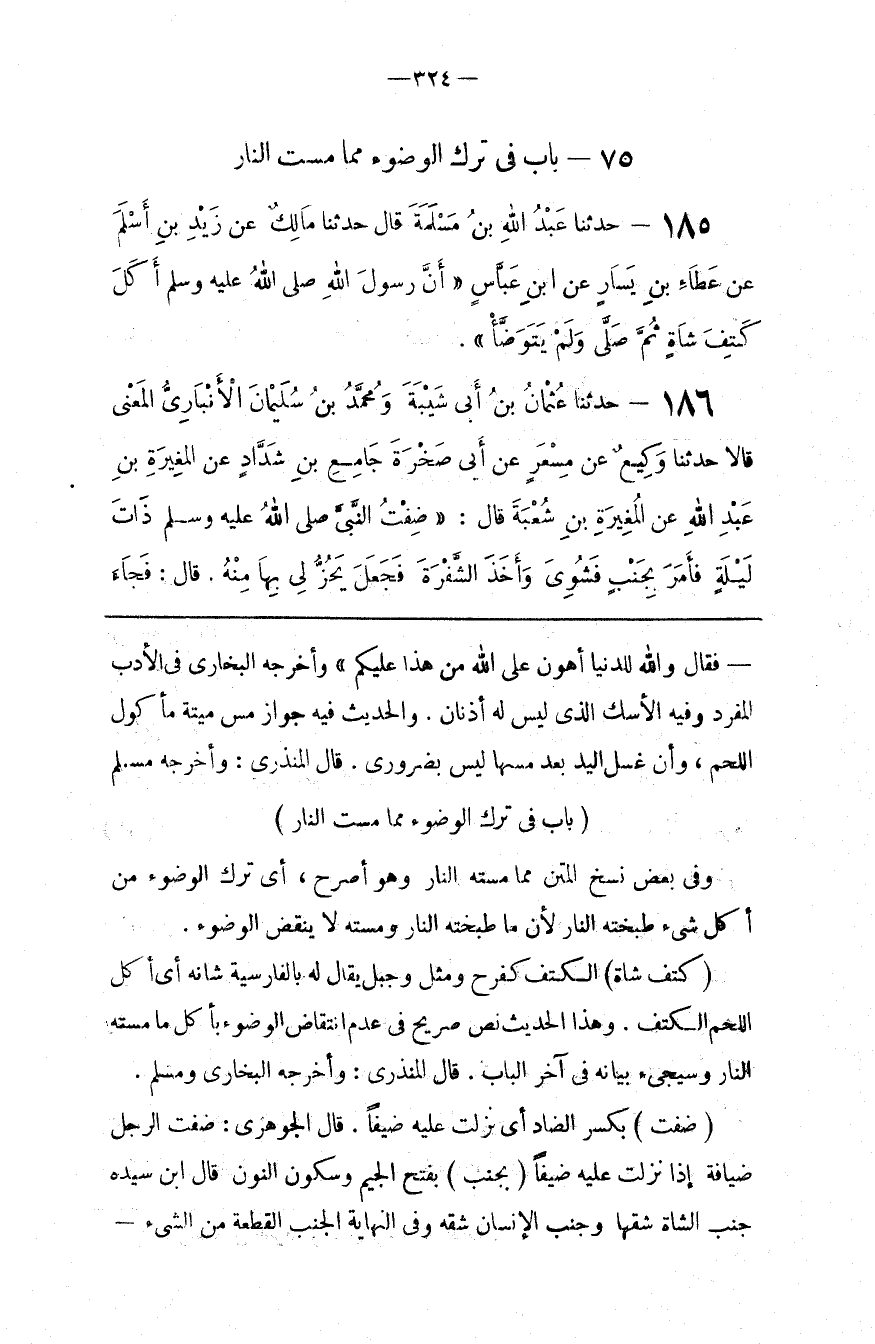 — ٣٢٤ —
٧٥ — باب فى ترك الوضوء مما مست النار
١٨٥ — حدثنا عَبْدُ اللهِ بنُ مَسْلَمَةَ قال حدثنا مَالِكٌ عن زَيْدِ بنِ أَسْلَمَ
عن عَطَاءِ بنِ يَسَارٍ عن ابنِ عَبَّاسٍ « أَنَّ رسولَ اللهِ صلى اللهُ عليه وسلم أَكَلَ
كَتِفَ شاةٍ ثُمَّ صَلَّى وَلَمْ يَتَوَضَّأْ » .
١٨٦ — حدثنا عُثْمانُ بنُ أَبى شَيْبَةَ وَمُحمَّدُ بنُ سُلَيْمانَ الْأَنْبارِىُّ المَعْنى
قالا حدثنا وَكِيعٌ عن مِسْعَرٍ عن أَبى صَخْرَةَ جَامِعِ بنِ شَدَّادٍ عن المُغِيرَةِ بنِ
عَبْدِ اللهِ عن المُغِيرَةِ بنِ شُعْبَةَ قال : « ضِفْتُ النَّبىَّ صلى اللهُ عليه وسلم ذَاتَ
لَيْلَةٍ فأَمَرَ بِجَنْبٍ فَشُوِىَ وَأَخَذَ الشَّفْرَةَ فَجَعَلَ يَحُزُّ لِى بِهَا مِنْهُ . قال : فَجَاءَ
— فقال والله للدنيا أهون على الله من هذا عليكم » وأخرجه البخارى فى الأدب
المفرد وفيه الأسك الذى ليس له أذنان . والحديث فيه جواز مس ميتة مأكول
اللحم ، وأن غسل اليد بعد مسها ليس بضرورى . قال المنذرى : وأخرجه مسلم
( باب فى ترك الوضوء مما مست النار )
وفى بعض نسخ المتن مما مسته النار وهو أصرح ، أى ترك الوضوء من
أكل شىء طبخته النار لأن ما طبخته النار ومسته لا ينقض الوضوء .
( كتف شاة) الكتف كفرح ومثل وجبل يقال له بالفارسية شانه أى أكل
اللحم الكتف . وهذا الحديث نص صريح فى عدم انتقاض الوضوء بأكل ما مسته
النار وسيجىء بيانه فى آخر الباب . قال المنذرى : وأخرجه البخارى ومسلم .
( ضفت ) بكسر الضاد أى نزلت عليه ضيفاً . قال الجوهرى : ضفت الرجل
ضيافة إذا نزلت عليه ضيفاً ( بجنب ) بفتح الجيم وسكون النون قال ابن سيده
جنب الشاة شقها وجنب الإنسان شقه وفى النهاية الجنب القطعة من الشىء —